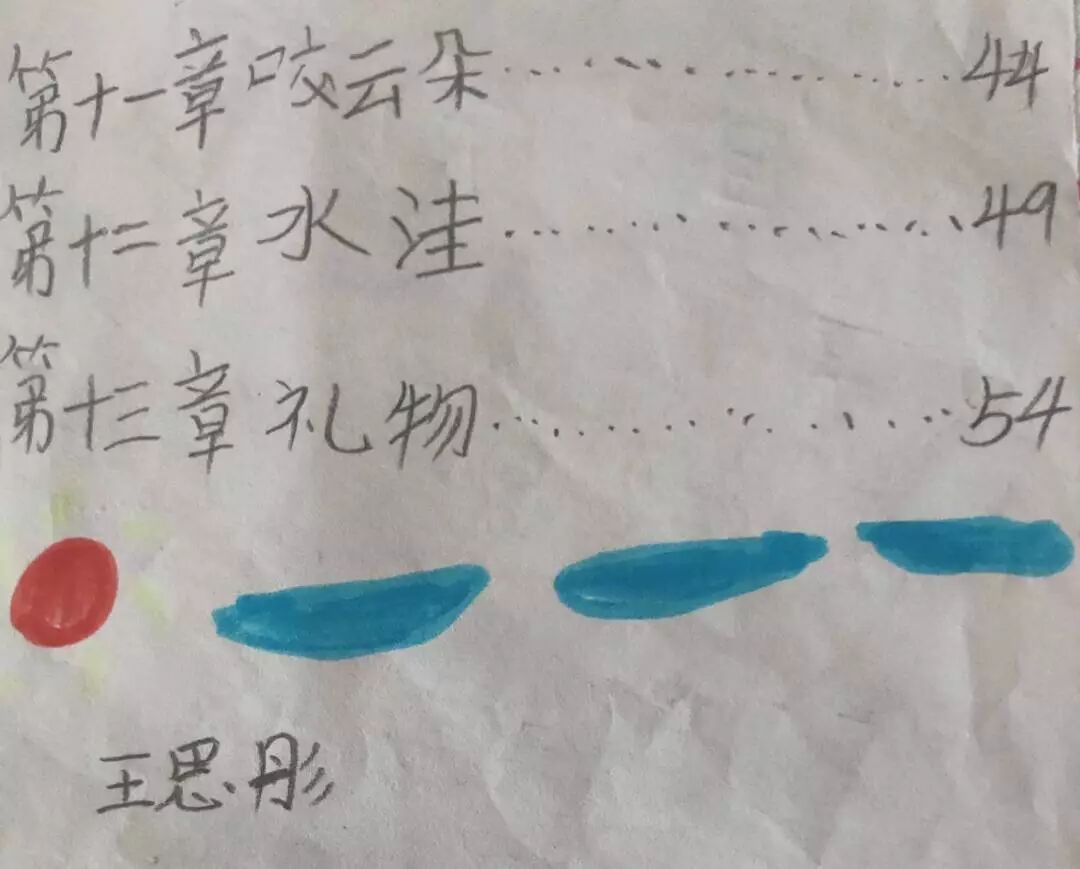 第十一章咬云朵……………44
第十二章水洼……………49
第十三章礼物……………54
王思彤